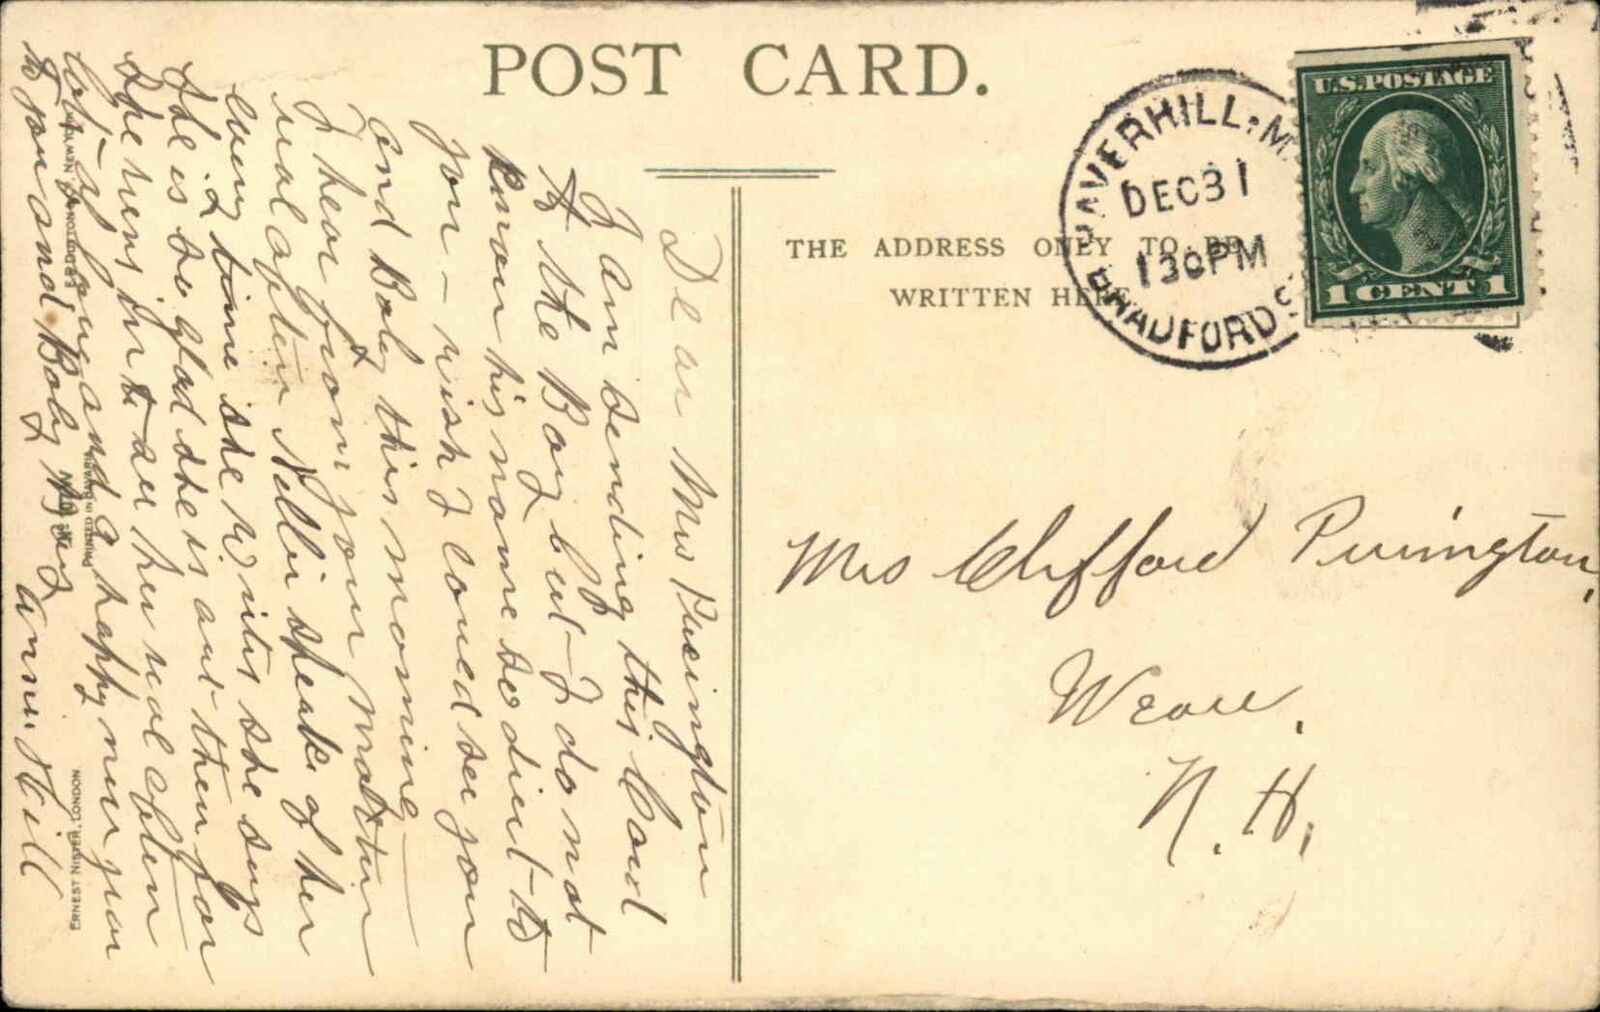 POST CARD.
THE ADDRESS ONLY TO BE
WRITTEN HERE
HAVERHILL, M
DEC 31
1 30 PM
BRADFORD S
U.S. POSTAGE
1 CENT 1
Mrs Clifford Purington,
Weare,
N. H.
Dear Mrs Purington
I am sending this Card
to the Boy but I do not
know his name so dirict to
you - wish I coued see you
and Baby this morning
I hear from your Mother
real often Nellie speaks of her
every time she writes she says
she is so glad she is and then for
she runs in to see her real often
Lots of love and a happy new year
to you and Baby Boy
Annie Hill
ERNEST NISTER, LONDON
PRINTED IN BAVARIA
E.P. DUTTON & Co. NEW YORK